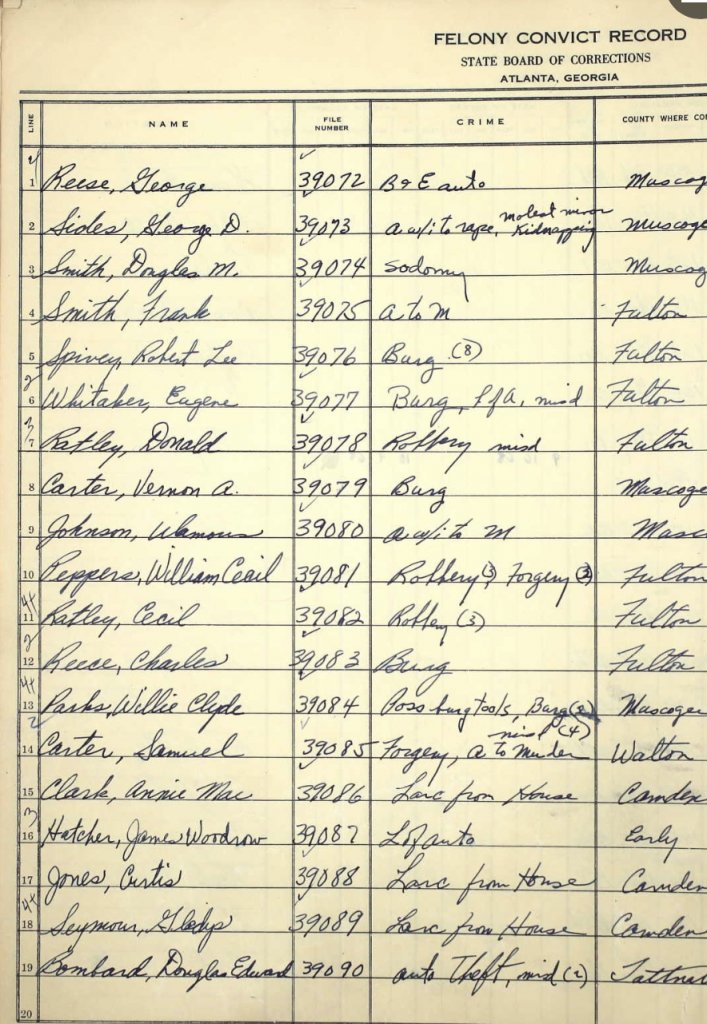 FELONY CONVICT RECORD
STATE BOARD OF CORRECTIONS
ATLANTA, GEORGIA
LINE NAME FILE NUMBER CRIME COUNTY WHERE CO
1 Reese, George 39072 B & E auto Muscog
2 Sides, George D. 39073 a w/i to rape, molest minor Kidnapping Muscoge
3 Smith, Douglas M. 39074 Sodomy Muscog
4 Smith, Frank 39075 A to M Fulton
5 Spivey, Robert Lee 39076 Burg (8) Fulton
2
6 Whitaker, Eugene 39077 Burg, L of A, misd Fulton
3
7 Ratley, Donald 39078 Robbery misd Fulton
8 Carter, Vernon A. 39079 Burg Muscoge
9 Johnson, 39080 a w/i to M Musc
10 Peppers, William Cecil 39081 Robbery (3), Forgery Fulton
4x
11 Ratley, Cecil 39082 Robbery (3) Fulton
2
12 Reece, Charles 39083 Burg Fulton
4x
13 Parks, Willie Clyde 39084 Poss burg tools, Burg (2) misd (4) Muscogee
2
14 Carter, Samuel 39085 Forgery, A to Murder Walton
15 Clark, Annie Mae 39086 Larc from House Camden
3
16 Hatcher, James Woodrow 39087 L of auto Early
17 Jones, Curtis 39088 Larc from House Camden
4x
18 Seymour, Gladys 39089 Larc from House Camden
19 Bombard, Douglas Edward 39090 auto Theft, misd (2) Tattnal
20